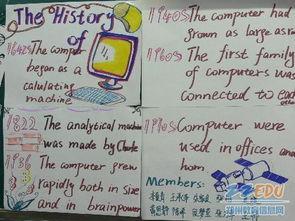 The History
of
1642s The computer
began as a
calulating
machine
1822 The analytical machine
was made by Charle
1936 The computer grew
rapidly both in size
and in brainpower
1940s The computer had
grown as large as
1960s The first family
of computers was
connected to each
1990s Computer were
used in offices and
hom
Members:
EDU
郑州教育信息网